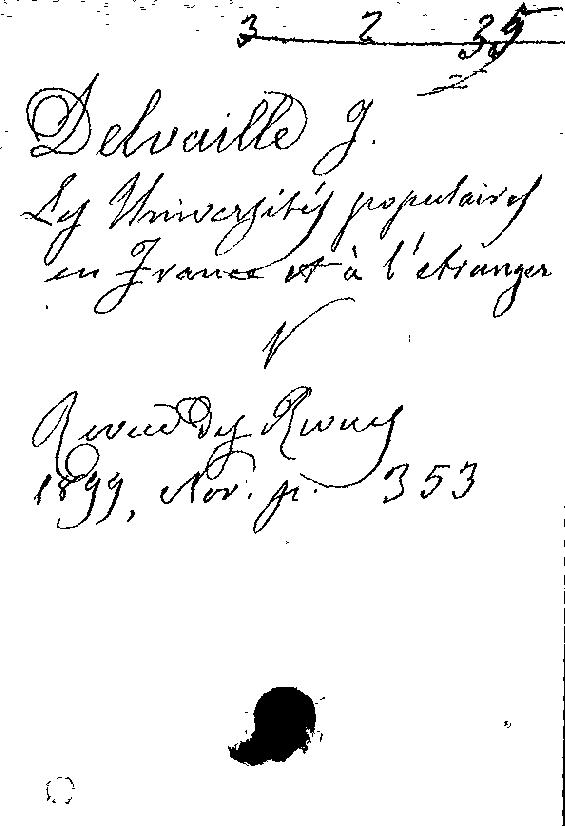 3 2 35
Delvaille J.
Les Universités populaires
en France et à l'étranger
V
Revue des Revues
1899, Nov. p. 353